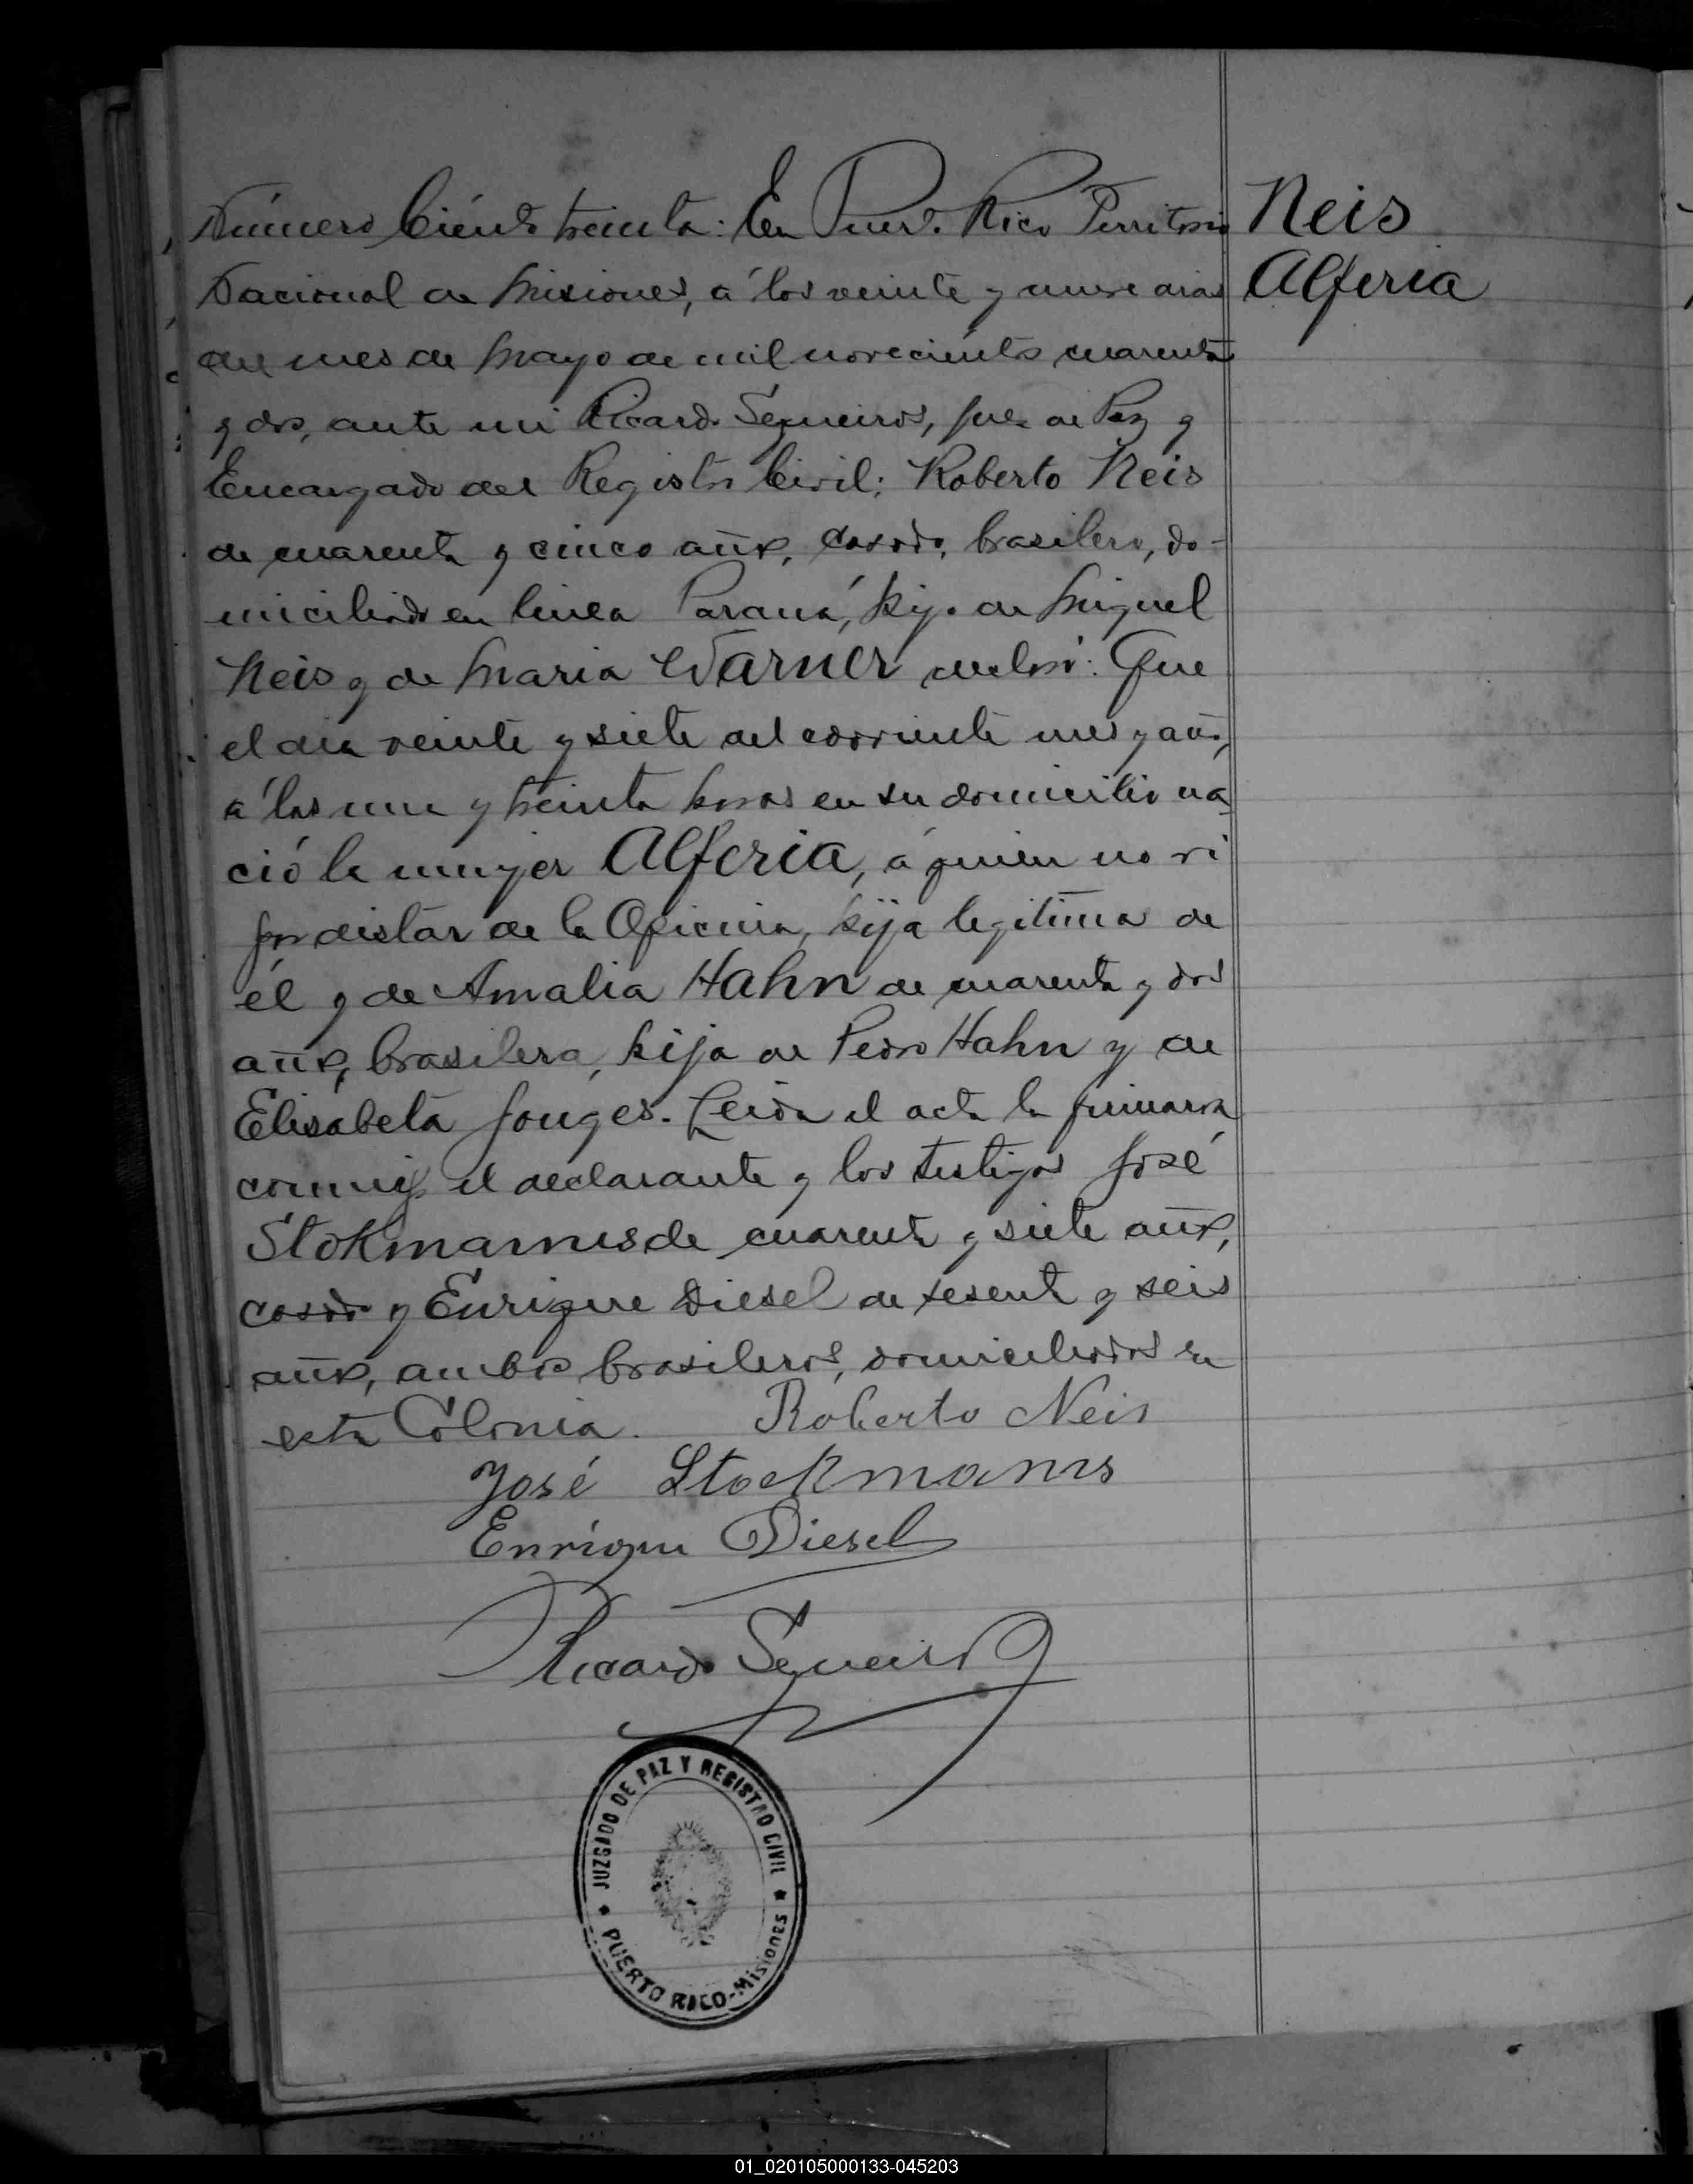 Número Ciento treinta: En Puerto Rico Territorio
Nacional de Misiones, á los veinte y nueve dias
del mes de Mayo de mil novecientos cuarenta
y dos, ante mi Ricardo Sequeiros, Juez de Paz y
Encargado del Registro Civil: Roberto Neis
de cuarenta y cinco años, casado, brasilero, do-
miciliado en linea Paraná, hijo de Miguel
Neis y de Maria Warner declaró: Que
el dia veinte y siete del corriente mes y año,
á las una y treinta horas en su domicilio na
ció la mujer Alferia, á quien no vi
por distar de la Oficina, hija legitima de
él y de Amalia Hahn de cuarenta y dos
años, brasilera, hija de Pedro Hahn y de
Elisabeta Jonges. Leida el acta la firmaron
conmigo el declarante y los testigos José
Stokmanns de cuarenta y siete años,
casado y Enrique Diesel de sesenta y seis
años, ambos brasileros, domiciliados en
esta Colonia. Roberto Neis
José Stockmanns
Enrique Diesel
Ricardo Sequeiros
JUZGADO DE PAZ Y REGISTRO CIVIL
PUERTO RICO-Misiones
Neis
Alferia
01_020105000133-045203